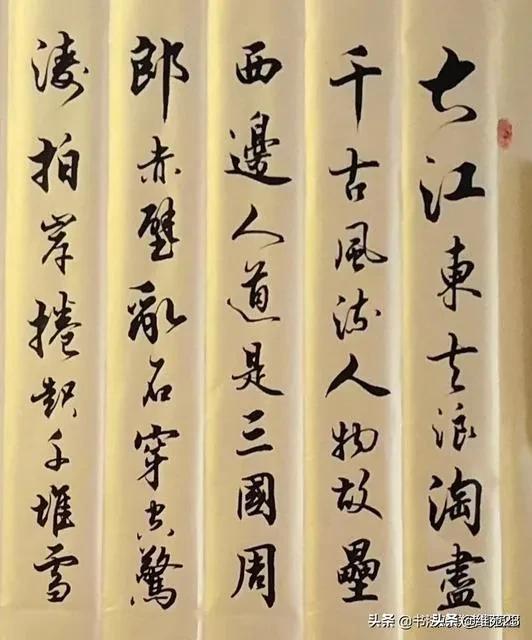 大江東去浪淘盡
千古風流人物故壘
西邊人道是三國周
郎赤壁亂石穿空驚
濤拍岸捲起千堆雪
头条 @书法